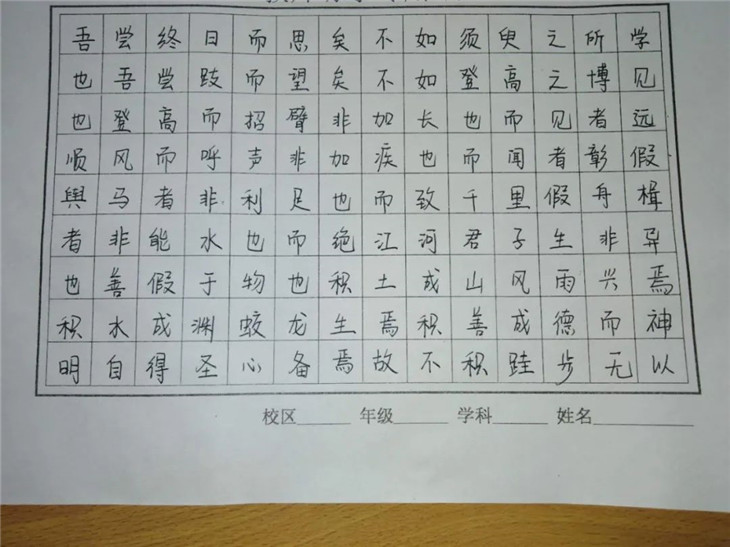 吾尝终日而思矣不如须臾之所学
也吾尝跂而望矣不如登高之博见
也登高而招臂非加长也而见者远
顺风而呼声非加疾也而闻者彰假
舆马者非利足也而致千里假舟楫
者非能水也而绝江河君子生非异
也善假于物也积土成山风雨兴焉
积水成渊蛟龙生焉积善成德而神
明自得圣心备焉故不积跬步无以
校区______ 年级______ 学科______ 姓名___________